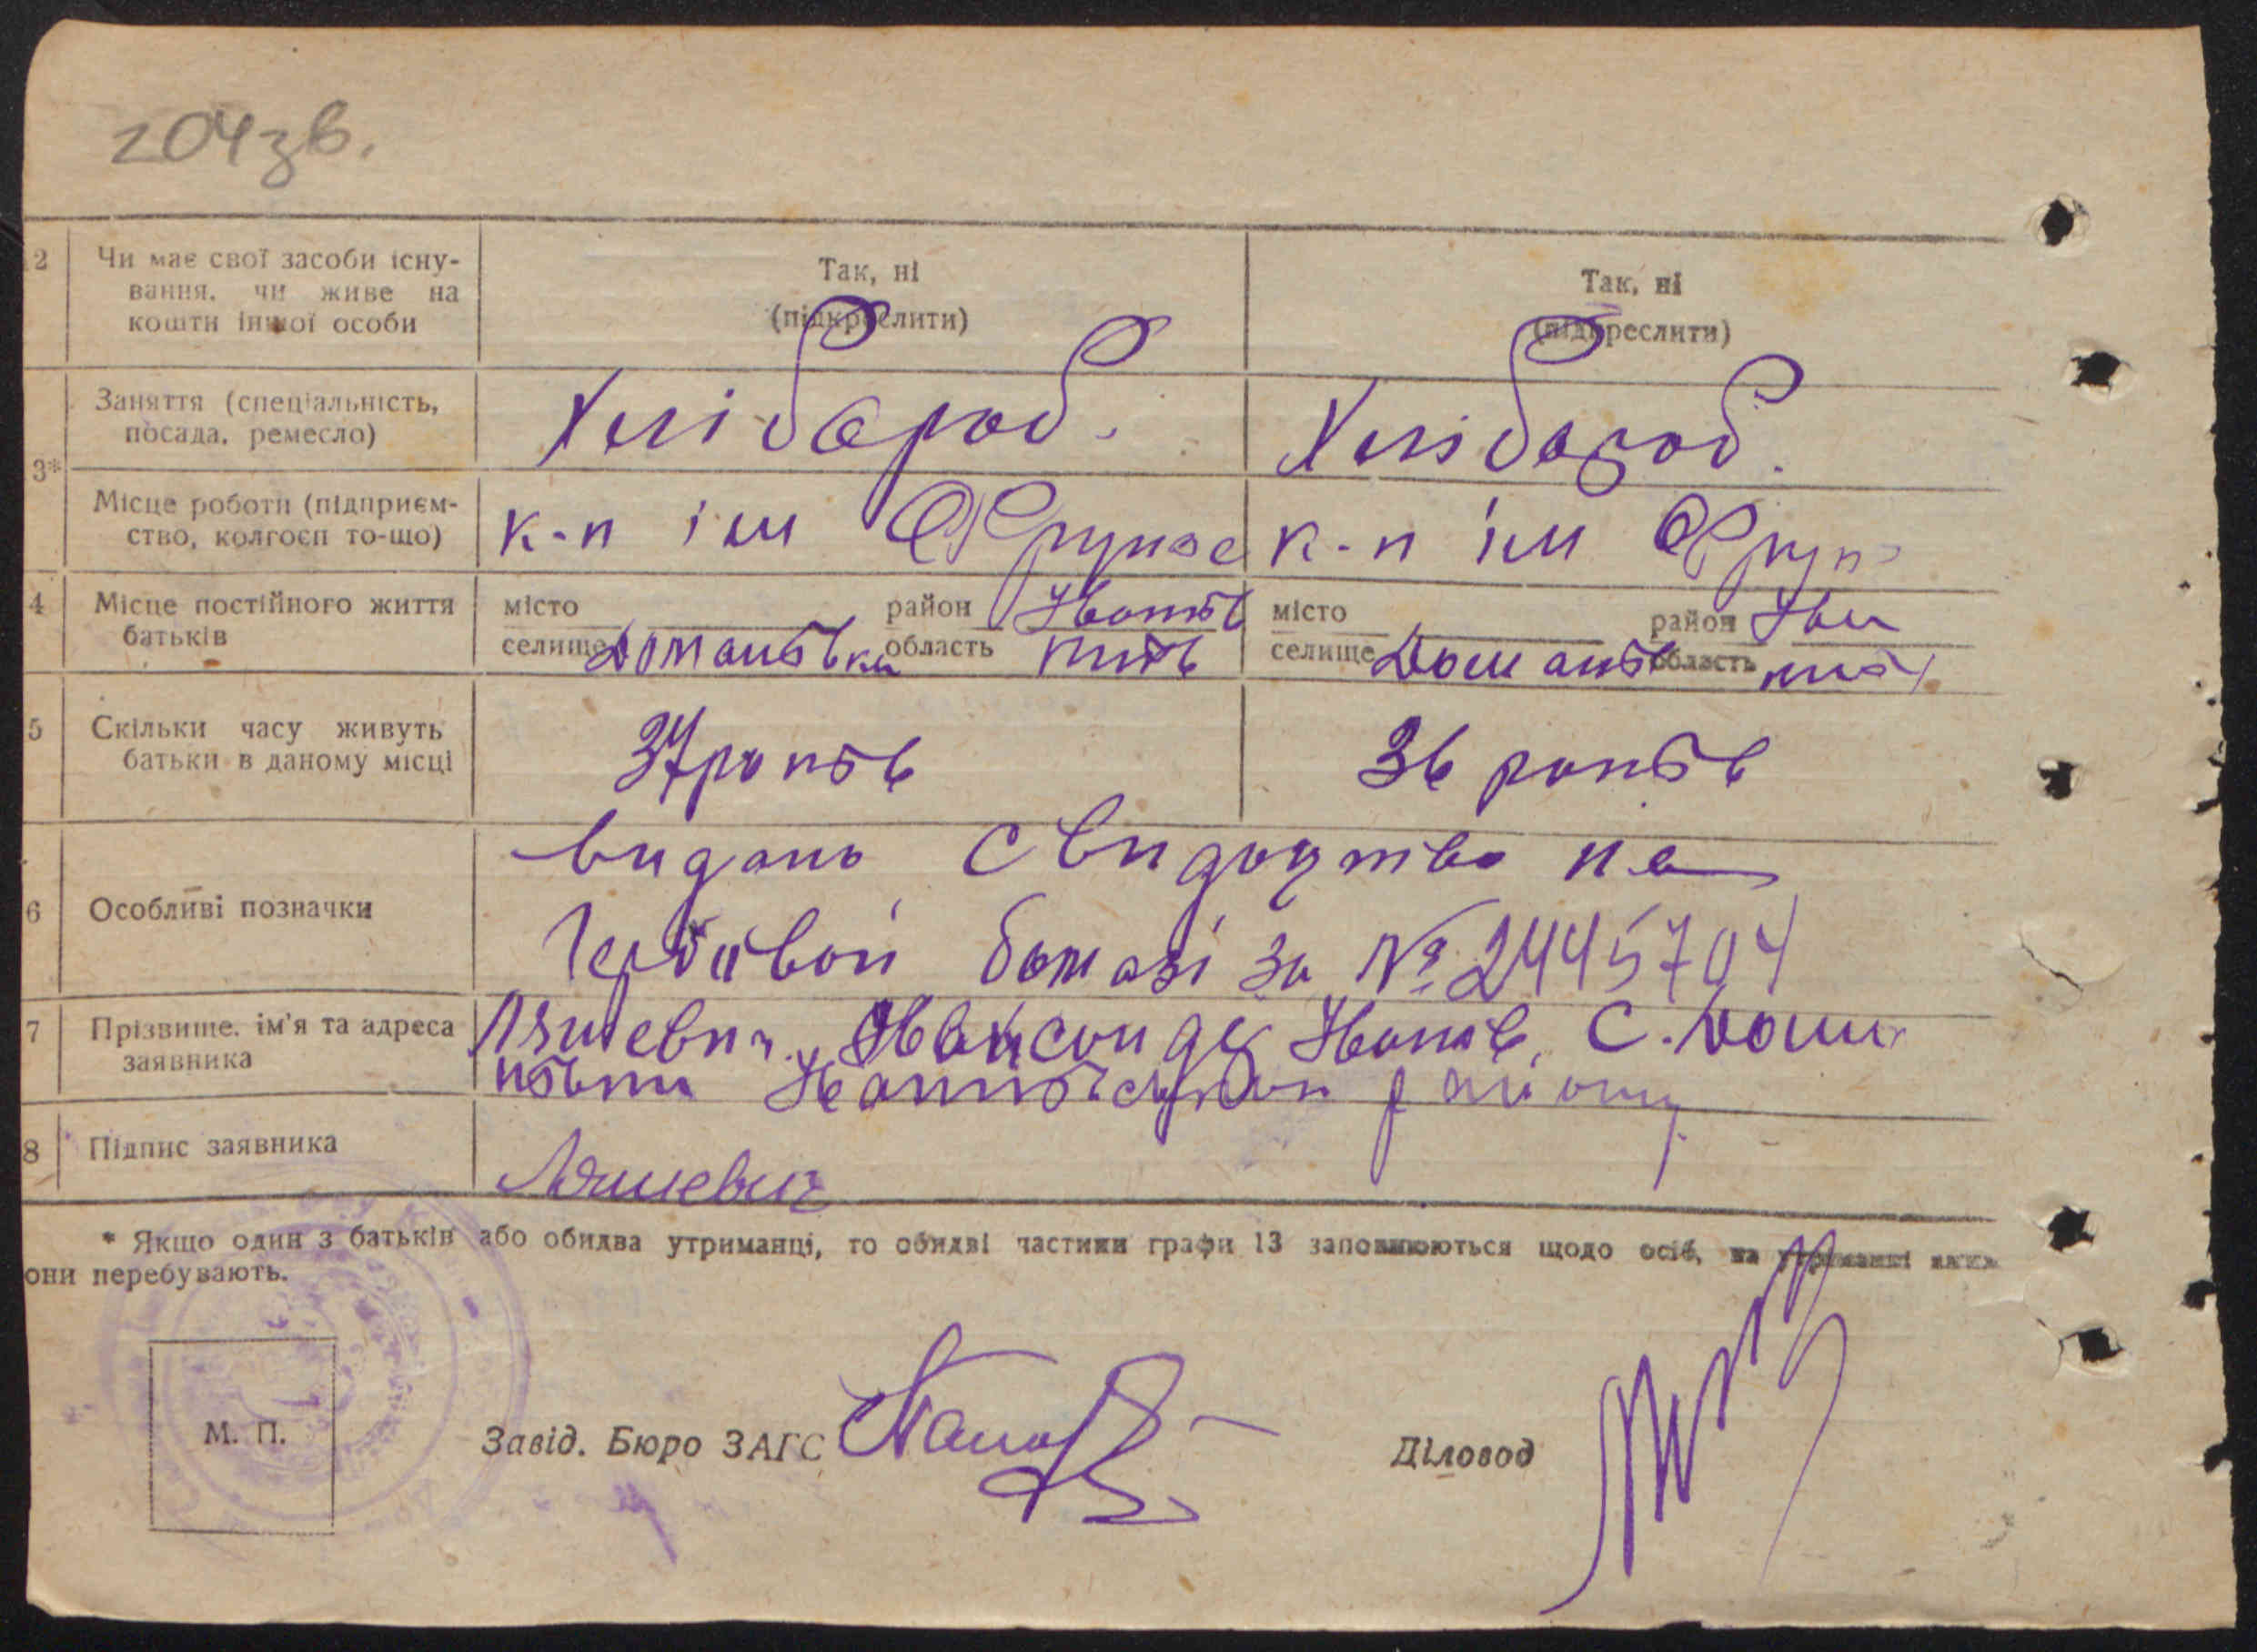 204зв.
2 Чи має свої засоби існу-
вання. чи живе на
кошти іншої особи
Так, ні
(підкреслити)
Так, ні
(підкреслити)
3*
Заняття (спеціальність,
посада, ремесло)
Хлібороб.
Хлібороб.
Місце роботи (підприєм-
ство, колгосп то-що)
к-п ім Фрунзе
к-п ім Фрунз
4 Місце постійного життя
батьків
місто район Іванків
селище Доманівка область
місто район Іван
селище Доманів область
5 Скільки часу живуть
батьки в даному місці
37 років
36 років
6 Особливі позначки
видано свидоцтво на
Гербовой бомазі за № 2445704
7 Прізвище. ім'я та адреса
заявника
Іванів. С. Дома
нівки району
8 Підпис заявника
* Якщо один з батьків або обидва утриманці, то обидві частини графи 13 заповнюються щодо осіб, на утриманні яких
они перебувають.
М. П.
Завід. Бюро ЗАГС
Діловод